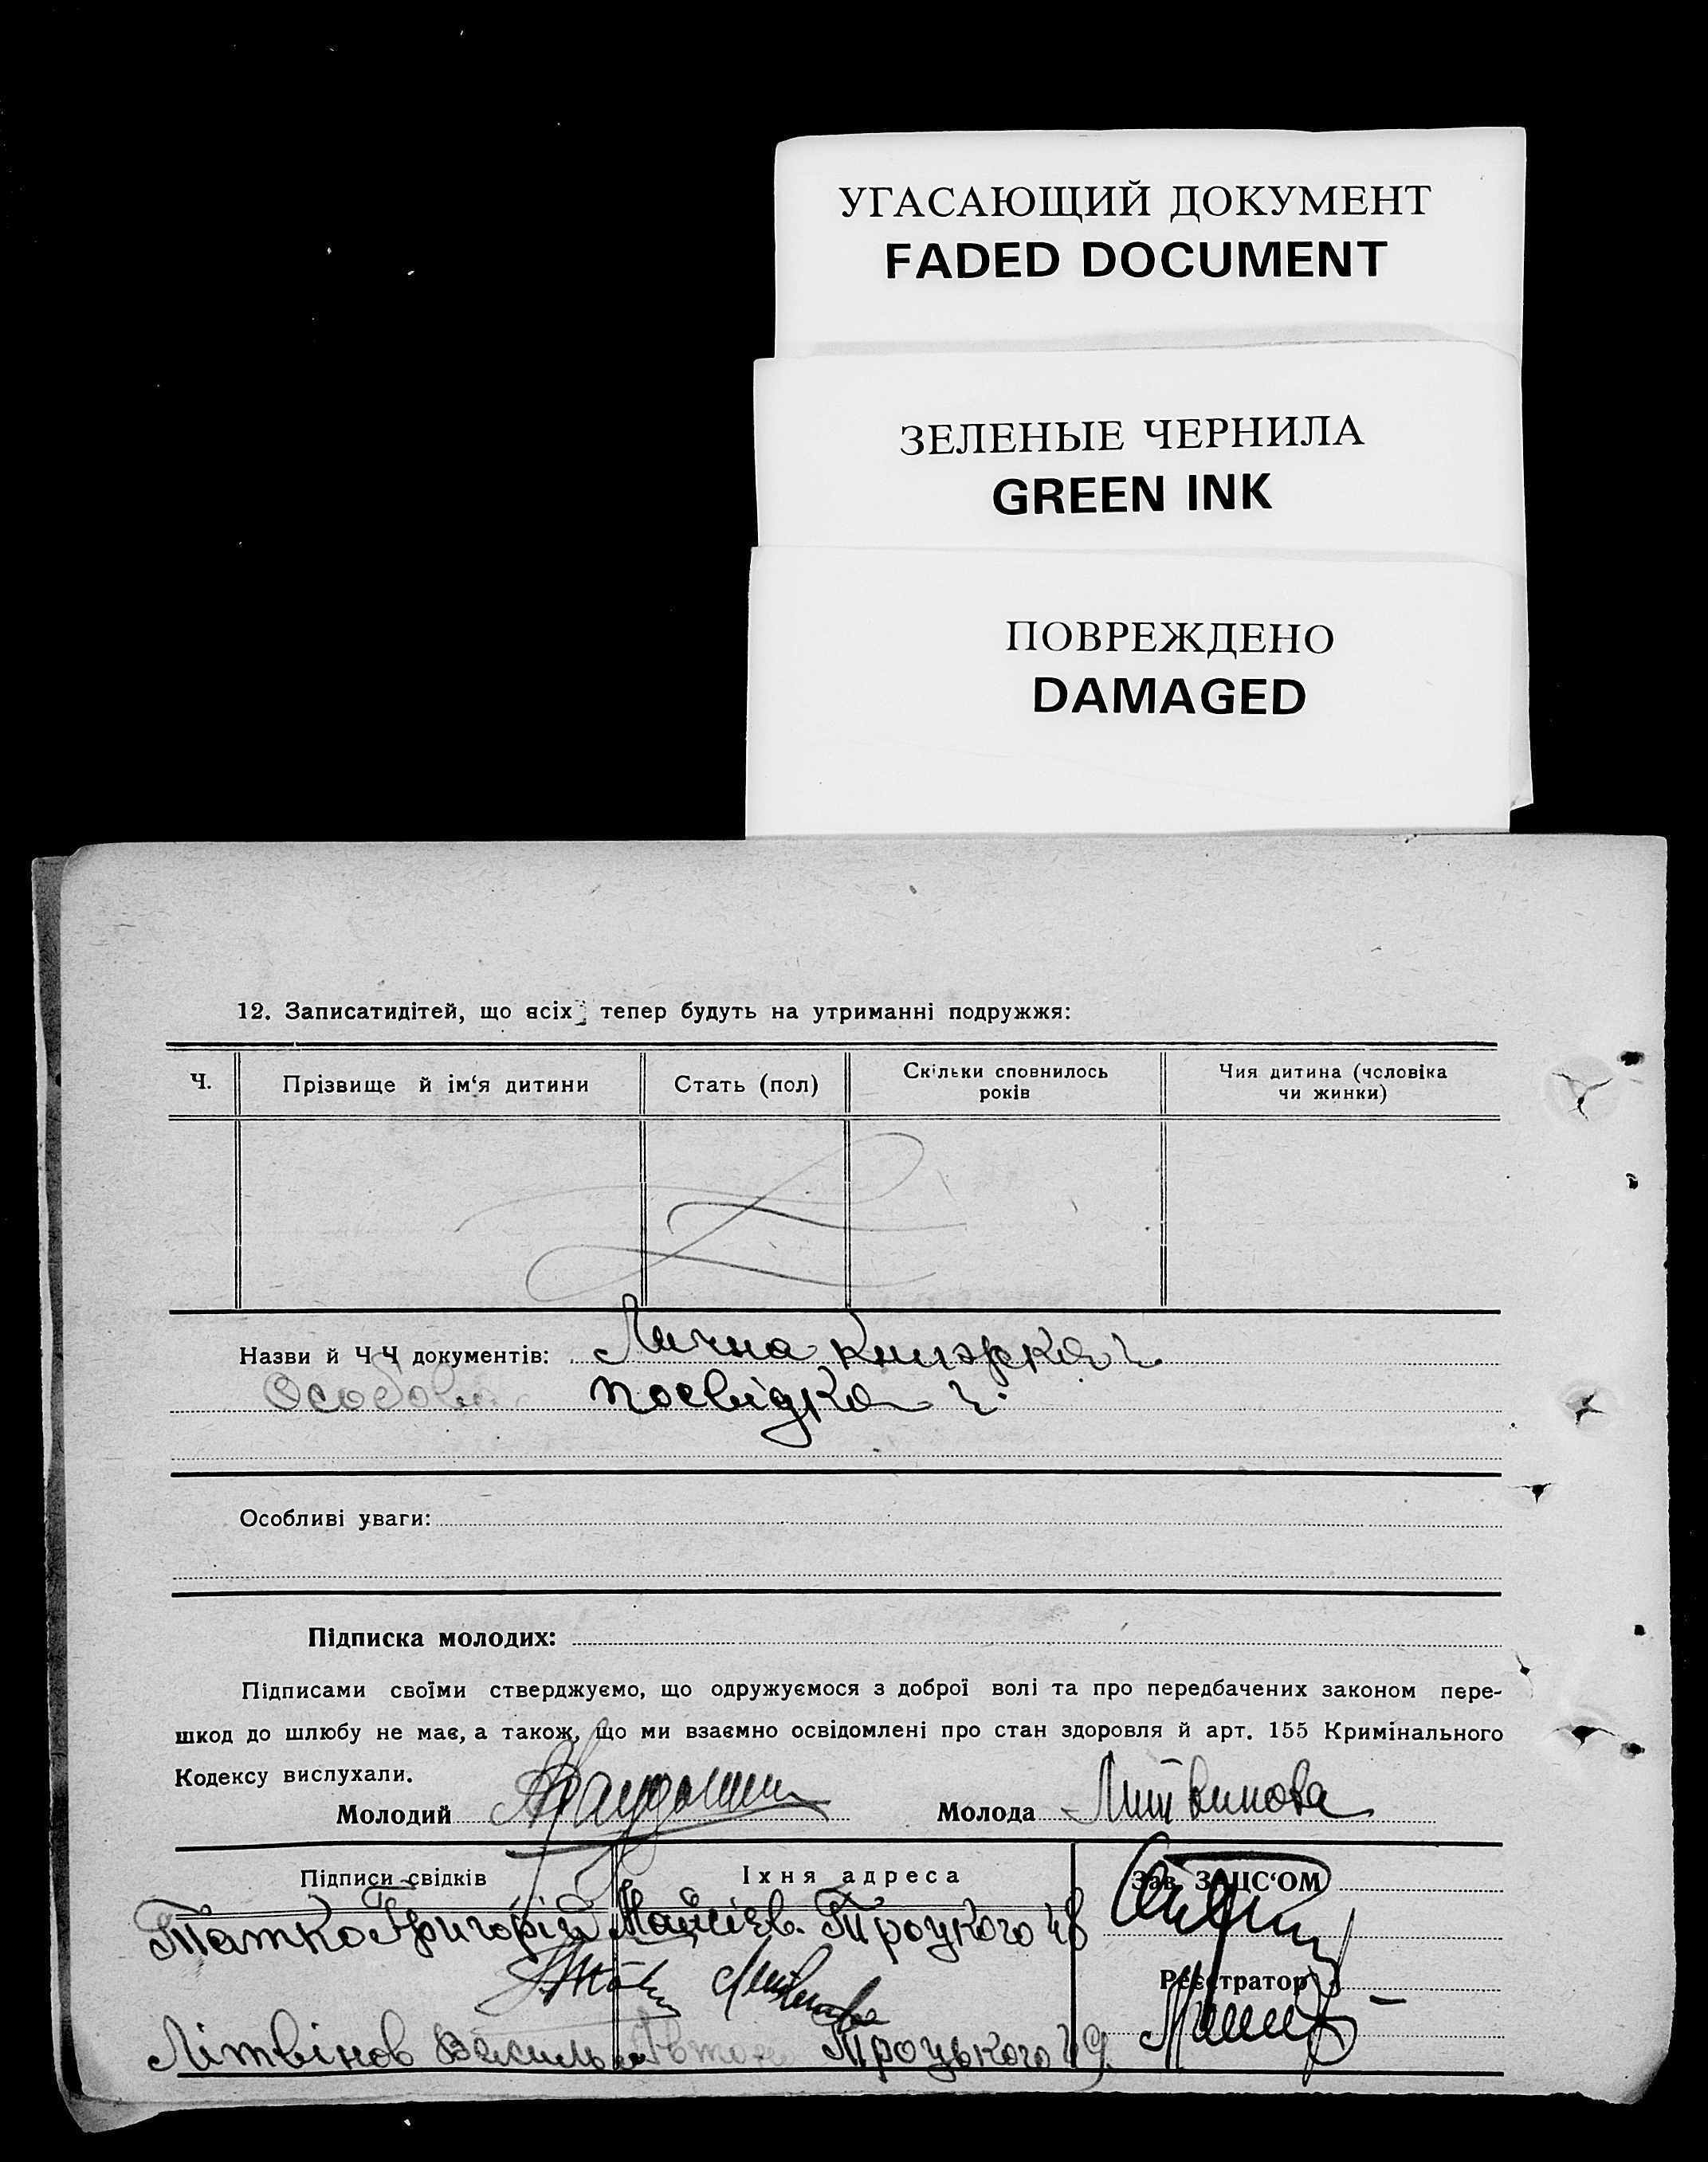 УГАСАЮЩИЙ ДОКУМЕНТ
FADED DOCUMENT
ЗЕЛЕНЫЕ ЧЕРНИЛА
GREEN INK
ПОВРЕЖДЕНО
DAMAGED
12. Записатидітей, що всіх тепер будуть на утриманні подружжя:
Ч.
Прізвище й ім‘я дитини
Стать (пол)
Скільки сповнилось
років
Чия дитина (чоловіка
чи жинки)
Назви й ЧЧ документів: Лична книжка ч.
Особова посвідка ч.
Особливі уваги:
Підписка молодих:
Підписами своїми стверджуємо, що одружуємося з доброї волі та про передбачених законом пере-
шкод до шлюбу не має, а також, що ми взаємно освідомлені про стан здоровля й арт. 155 Кримінального
Кодексу вислухали.
Молодий
Молода Литвинова
Підписи свідків
Їхня адреса
Зав. ЗАЦС‘ОМ
Татко Григорій Троцкого 48
Реєстратор
Літвінов Василь Троцького